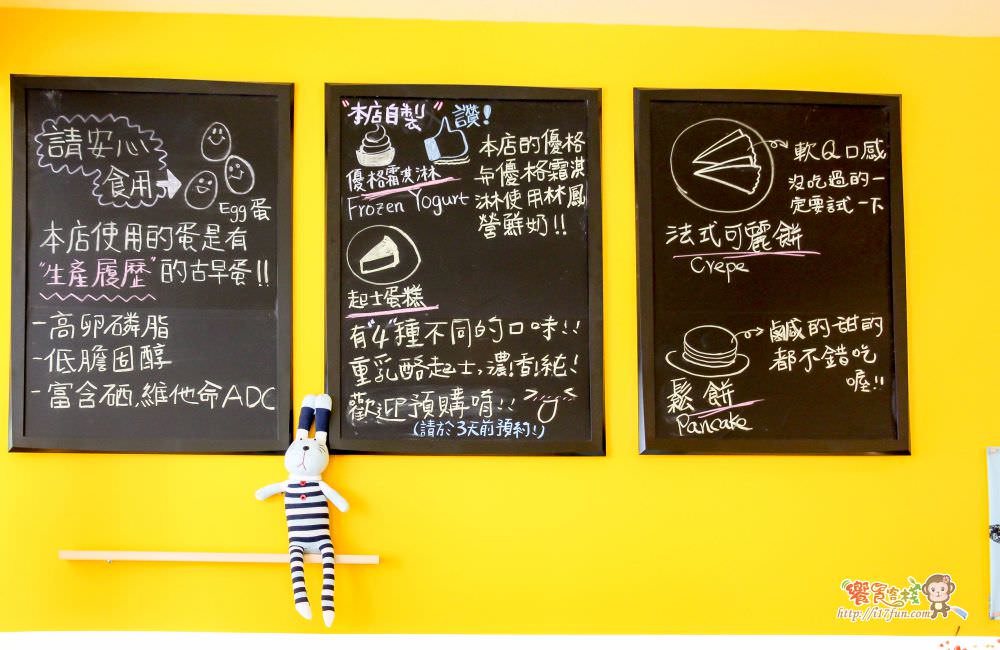 請安心
食用
Egg蛋
本店使用的蛋是有
"生產履歷"的古早蛋!!
-高卵磷脂
-低膽固醇
-富含硒.維他命ADC
"本店自製"讚!
優格霜淇淋
Frozen Yogurt
本店的優格
与優格霜淇
淋使用林鳳
營鮮奶!!
起士蛋糕
有"4"種不同的口味!!
重乳酪起士,濃!香!純!
歡迎預購唷!!
(請於3天前預約!)
軟Q口感
沒吃過的一
定要試一下
法式可麗餅
Crepe
鹹的甜的
都不錯吃
喔!!
鬆餅
Pancake
饗買客棧
http://i17fun.com